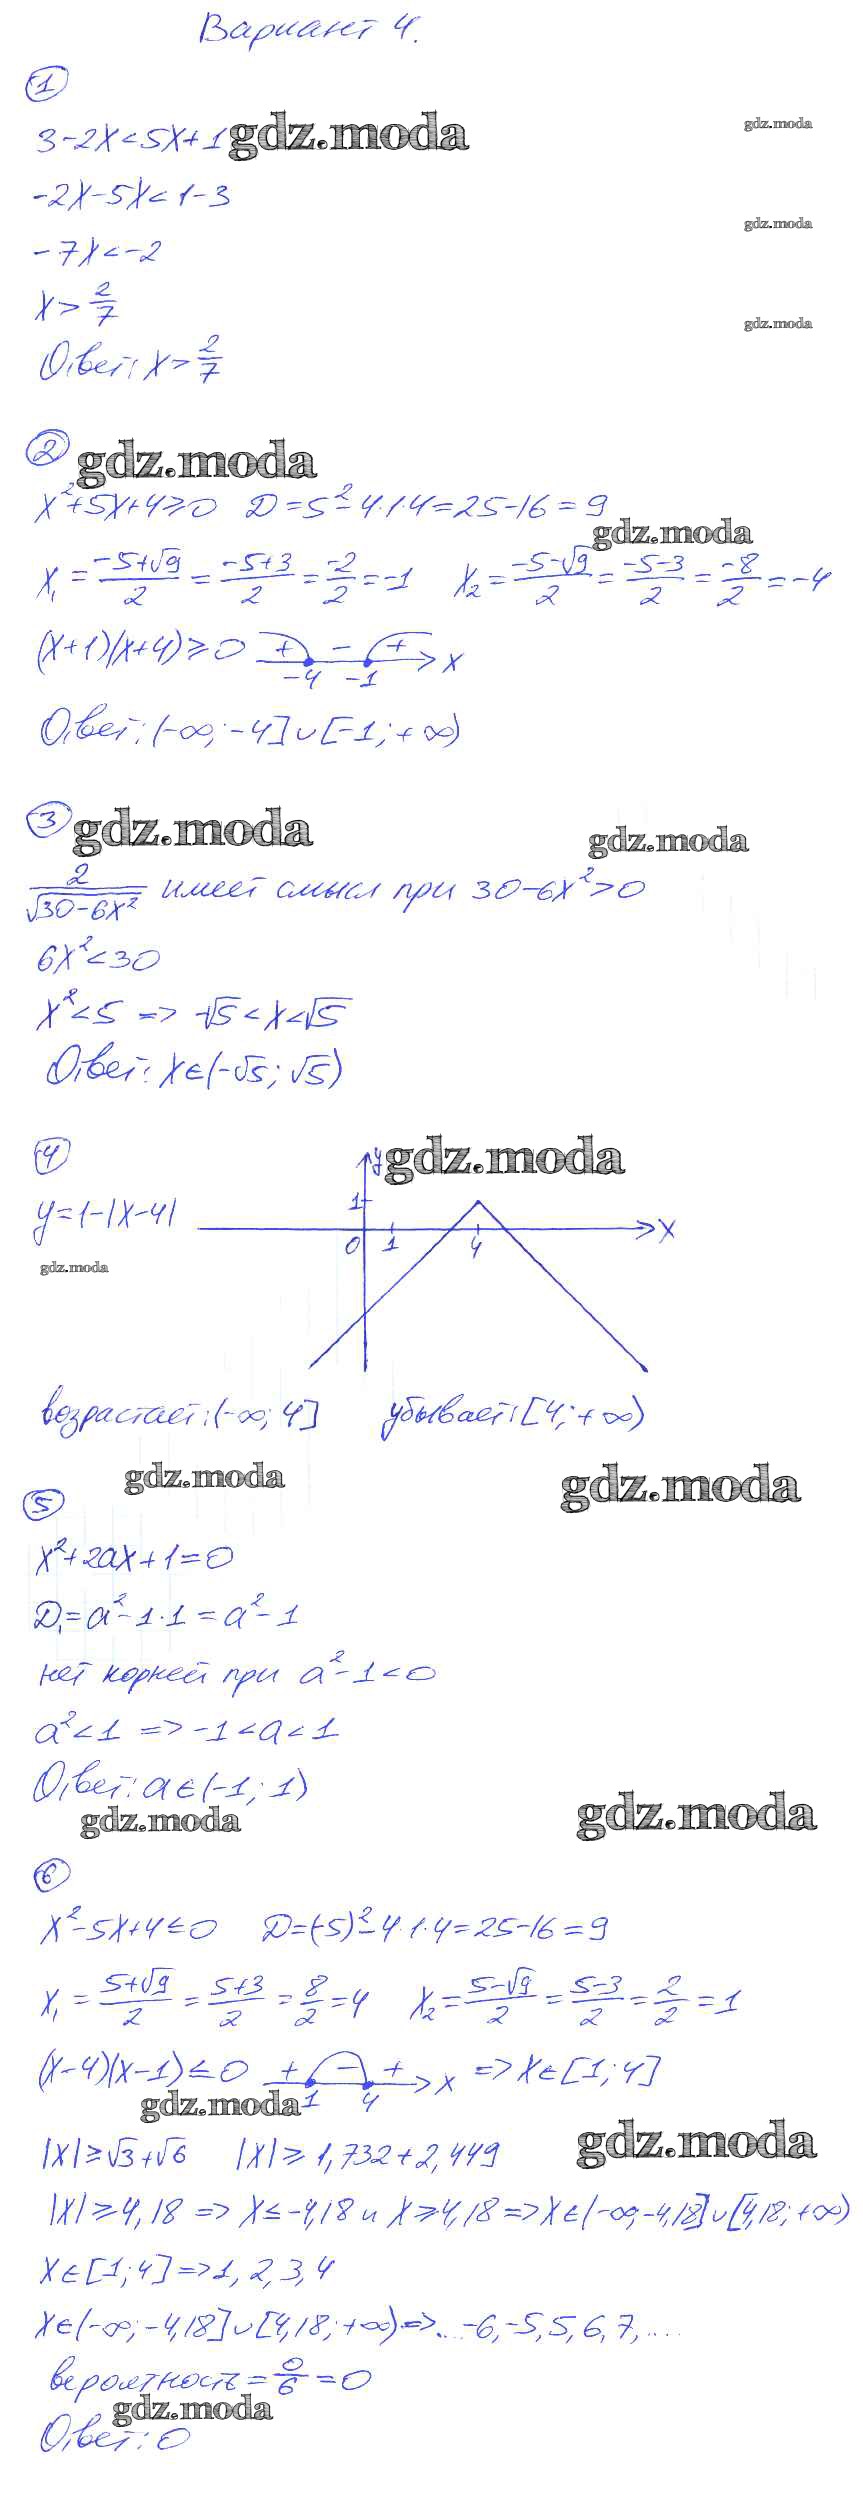 Вариант 4.
1
3-2x<5x+1 gdz.moda gdz.moda
-2x-5x<1-3 gdz.moda
-7x<-2
x>2/7 gdz.moda
Ответ: x>2/7
2 gdz.moda
x²+5x+4≥0 D=5²-4·1·4=25-16=9
gdz.moda
x₁=(-5+√9)/2=(-5+3)/2=-2/2=-1 x₂=(-5-√9)/2=(-5-3)/2=-8/2=-4
(x+1)(x+4)≥0 + - + x
-4 -1
Ответ: (-∞; -4]∪[-1; +∞)
3 gdz.moda gdz.moda
2/√(30-6x²) имеет смысл при 30-6x²>0
6x²<30
x²<5 => -√5<x<√5
Ответ: x∈(-√5; √5)
4 y gdz.moda
y=1-|x-4| 1 x
0 1 4
gdz.moda
возрастает: (-∞; 4] убывает: [4; +∞)
gdz.moda gdz.moda
5
x²+2ax+1=0
D₁=a²-1·1=a²-1
нет корней при a²-1<0
a²<1 => -1<a<1
Ответ: a∈(-1; 1)
gdz.moda gdz.moda
6
x²-5x+4≤0 D=(-5)²-4·1·4=25-16=9
x₁=(5+√9)/2=(5+3)/2=8/2=4 x₂=(5-√9)/2=(5-3)/2=2/2=1
(x-4)(x-1)≤0 + - + x => x∈[1; 4]
1 4
gdz.moda gdz.moda
|x|≥√3+√6 |x|≥1,732+2,449
|x|≥4,18 => x≤-4,18 и x≥4,18 => x∈(-∞; -4,18]∪[4,18; +∞)
x∈[1; 4] => 1, 2, 3, 4
x∈(-∞; -4,18]∪[4,18; +∞) => ... -6, -5, 5, 6, 7, ....
вероятность = 0/6 = 0
gdz.moda
Ответ: 0